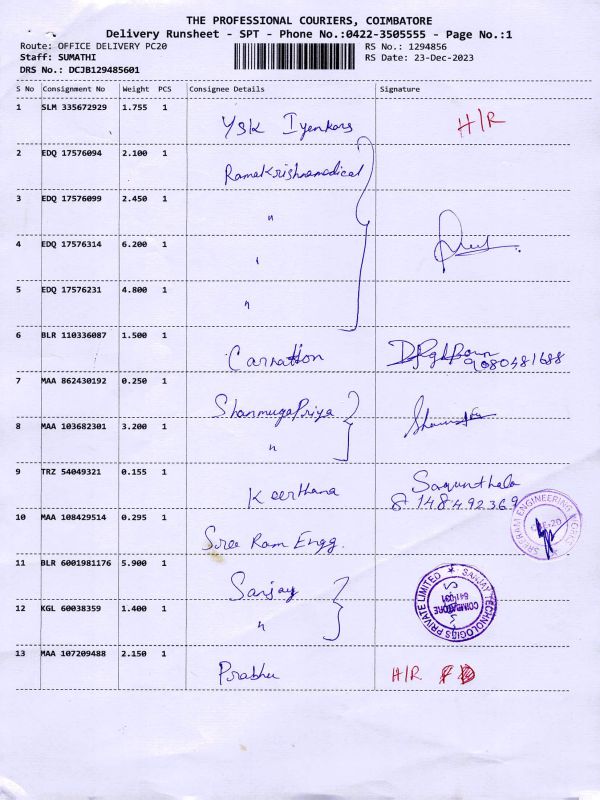 THE PROFESSIONAL COURIERS, COIMBATORE
Delivery Runsheet - SPT - Phone No.:0422-3505555 - Page No.:1
Route: OFFICE DELIVERY PC20 RS No.: 1294856
Staff: SUMATHI RS Date: 23-Dec-2023
DRS No.: DCJB129485601
S No Consignment No Weight PCS Consignee Details Signature
1 SLM 335672929 1.755 1
YSK Iyenkars H/R
2 EDQ 17576094 2.100 1
Ramakrishnamedical
3 EDQ 17576099 2.450 1
"
4 EDQ 17576314 6.200 1
"
5 EDQ 17576231 4.800 1
"
6 BLR 110336087 1.500 1
Carnation 9080481688
7 MAA 862430192 0.250 1
ShanmugaPriya
8 MAA 103682301 3.200 1
"
9 TRZ 54049321 0.155 1
Keerthana Sagunthala
8148492369
10 MAA 108429514 0.295 1
Sree Ram Engg.
SRI SRAM ENGINEERING
11 BLR 6001981176 5.900 1
Sanjay
SANJAY TECHNOLOGIES PRIVATE LIMITED
COIMBATORE
641 031
12 KGL 60038359 1.400 1
"
13 MAA 107209488 2.150 1
Prabhu H/R